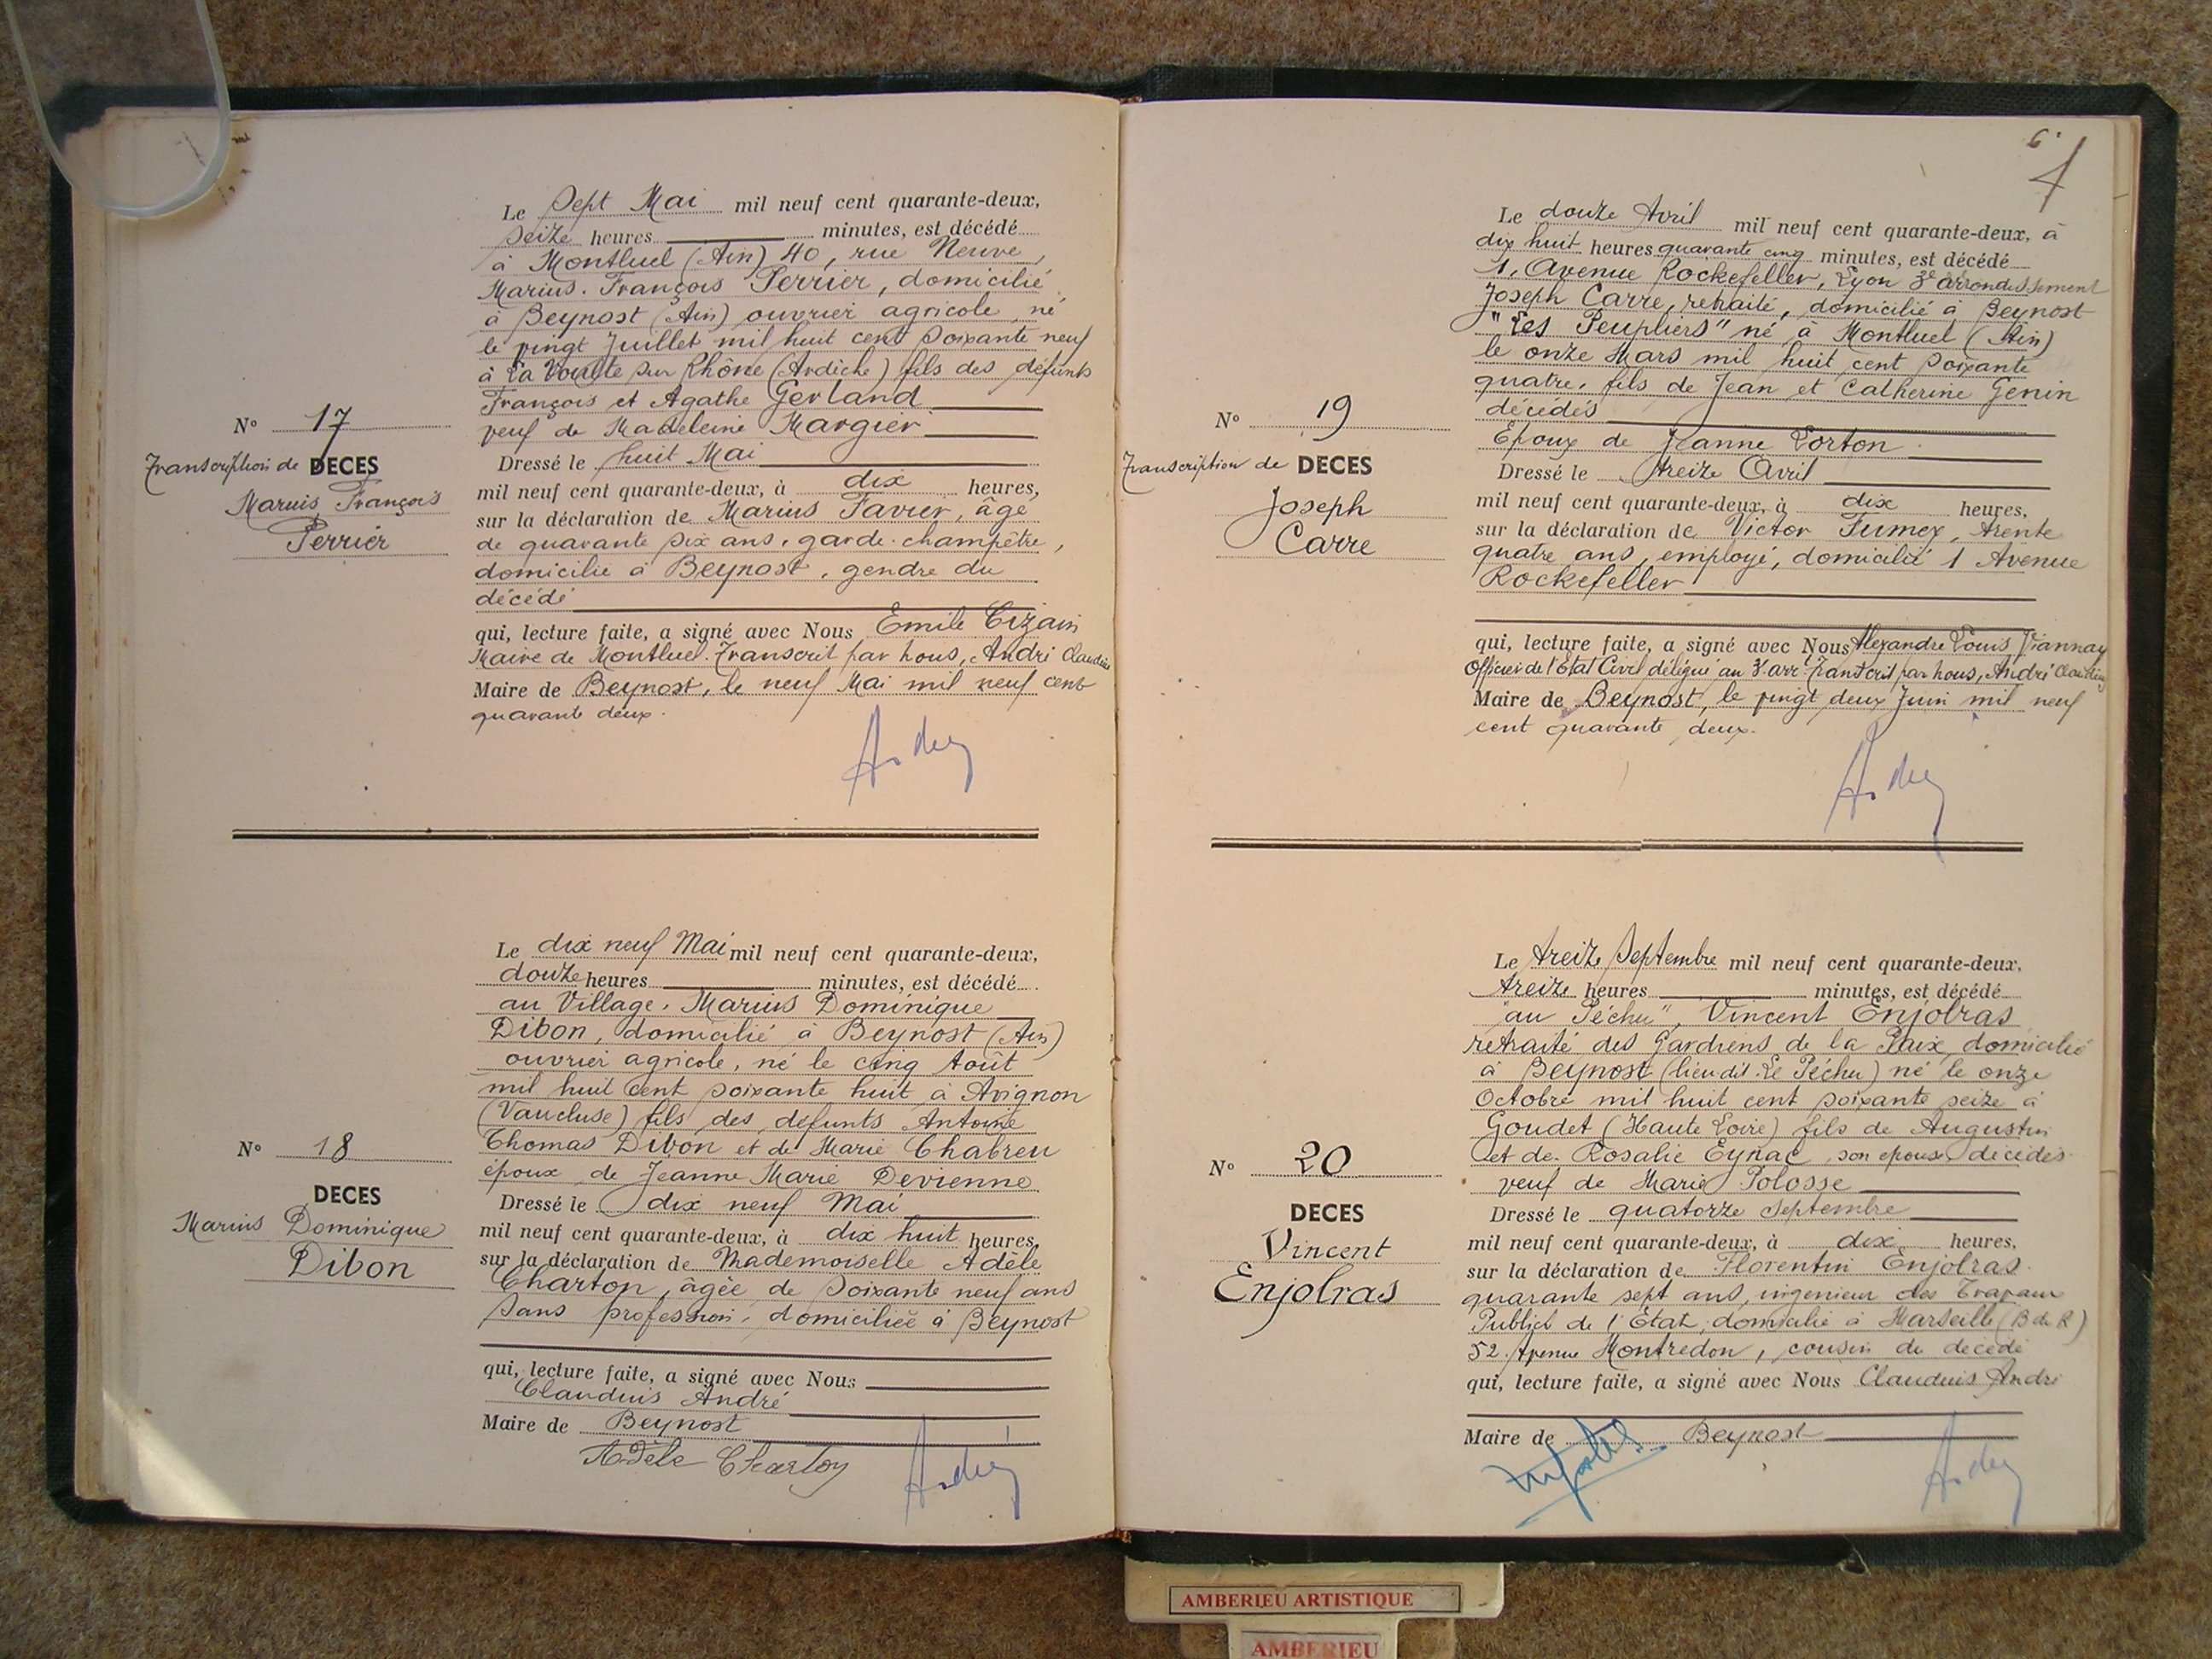 Le Sept Mai mil neuf cent quarante-deux,
Seize heures minutes, est décédé
à Montluel (Ain) 40, rue Neuve,
Marius François Perrier, domicilié
à Beynost (Ain) ouvrier agricole, né
le vingt Juillet mil huit cent soixante neuf
à La Voulte sur Rhône (Ardèche) fils des défunts
François et Agathe Gerland
veuf de Madeleine Margier
Nº 17
Transcription de DECES
Marius François
Perrier
Dressé le huit Mai
mil neuf cent quarante-deux, à dix heures,
sur la déclaration de Marius Favier, âgé
de quarante six ans, garde-champêtre,
domicilié à Beynost, gendre du
décédé
qui, lecture faite, a signé avec Nous Emile Cizain
Maire de Montluel. Transcrit par nous, André Claudius
Maire de Beynost, le neuf Mai mil neuf cent
quarante deux.
Le dix neuf Mai mil neuf cent quarante-deux,
douze heures minutes, est décédé
au Village, Marius Dominique
Dibon, domicilié à Beynost (Ain)
ouvrier agricole, né le cinq Août
mil huit cent soixante huit à Avignon
(Vaucluse) fils des défunts Antoine
Thomas Dibon et de Marie Chabreu
époux de Jeanne Marie Devienne
Nº 18
DECES
Marius Dominique
Dibon
Dressé le dix neuf Mai
mil neuf cent quarante-deux, à dix huit heures,
sur la déclaration de Mademoiselle Adèle
Charton, âgée de soixante neuf ans
sans profession, domiciliée à Beynost
qui, lecture faite, a signé avec Nous
Claudius André
Maire de Beynost
Adèle Charton André
6
Le douze Avril mil neuf cent quarante-deux, à
dix huit heures quarante cinq minutes, est décédé
1, Avenue Rockefeller, Lyon 3e arrondissement
Joseph Carre, retraité, domicilié à Beynost
"Les Peupliers" né à Montluel (Ain)
le onze Mars mil huit cent soixante
quatre, fils de Jean et Catherine Genin
décédés
Epoux de Jeanne Lorton
Nº 19
Transcription de DECES
Joseph
Carre
Dressé le treize Avril
mil neuf cent quarante-deux, à dix heures,
sur la déclaration de Victor Fumex, trente
quatre ans, employé, domicilié 1 Avenue
Rockefeller
qui, lecture faite, a signé avec Nous Alexandre Louis Viannay
Officier de l'Etat Civil délégué au 3e arr. Transcrit par nous, André Claudius
Maire de Beynost, le vingt deux Juin mil neuf
cent quarante deux.
Le treize Septembre mil neuf cent quarante-deux,
treize heures minutes, est décédé
"au Péchu", Vincent Enjolras
retraité des Gardiens de la Paix domicilié
à Beynost (lieu dit Le Péchu) né le onze
Octobre mil huit cent soixante seize à
Goudet (Haute Loire) fils de Augustin
et de Rosalie Eynac, son epouse, décédés
veuf de Marie Polosse
Nº 20
DECES
Vincent
Enjolras
Dressé le quatorze Septembre
mil neuf cent quarante-deux, à dix heures,
sur la déclaration de Florentin Enjolras
quarante sept ans, ingenieur des Travaux
Publics de l'Etat, domicilié à Marseille (B du R)
52 Avenue Montredon, cousin du décédé
qui, lecture faite, a signé avec Nous Claudius André
Maire de Beynost
AMBERIEU ARTISTIQUE
AMBERIEU